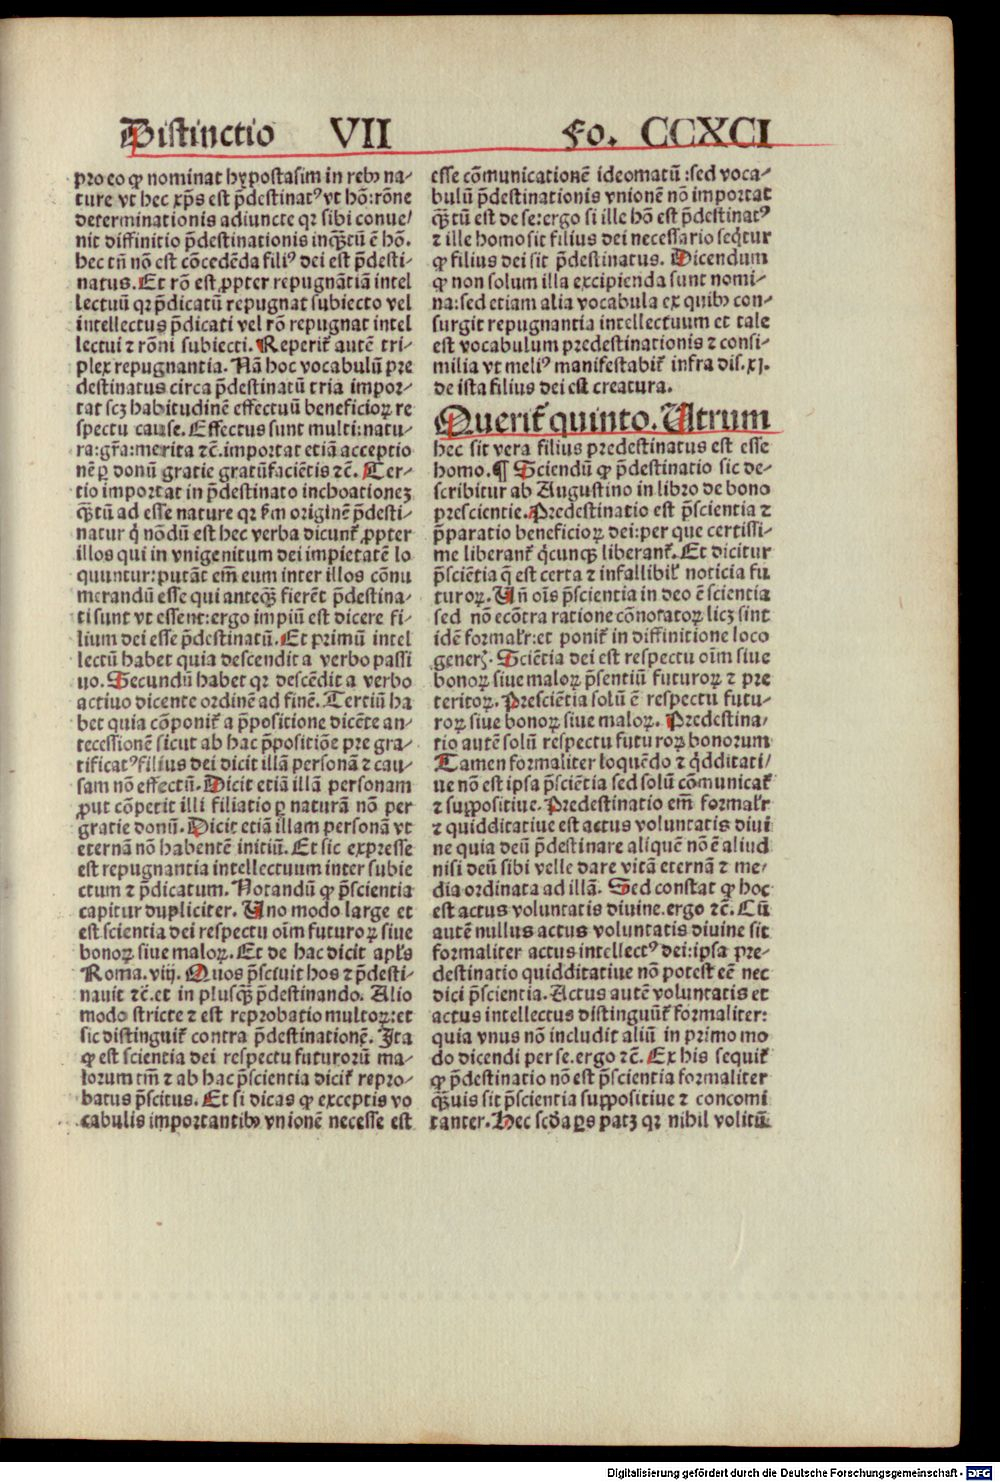 Distinctio VII Fo. CCXCI
pro eo ꝙ nominat hypostasim in rebꝰ na-
ture vt hec xp̄s est p̄destinatꝰ vt hō: rōne
determinationis adiuncte qꝛ sibi conue/
nit diffinitio p̄destinationis inqꝫtū ē hō.
hec tn̄ nō est cōcedēda filiꝰ dei est p̄desti-
natus. Et rō est ꝓpter repugnātiā intel
lectuū qꝛ p̄dicatū repugnat subiecto vel
intellectus p̄dicati vel rō repugnat intel
lectui ⁊ rōni subiecti. Reperit᷑ autē tri-
plex repugnantia. Nā hoc vocabulū pre
destinatus circa p̄destinatū tria impor-
tat scꝫ habitudinē effectuū beneficioꝝ re
spectu cause. Effectus sunt multi: natu-
ra: gr̄a: merita ⁊c̄. importat etiā acceptio
nē ꝑ donū gratie gratūfaciētis ⁊c̄. Ter-
tio importat in p̄destinato inchoationeꝫ
qꝫtū ad esse nature qꝛ s̄m originē p̄desti-
natur q̇ nōdū est hec verba dicunt᷑ ꝓpter
illos qui in vnigenitum dei impietatē lo
quuntur: putāt em̄ eum inter illos cōnu
merandū esse qui anteqꝫ fierēt p̄destina-
ti sunt vt essent: ergo impiū est dicere fi-
lium dei esse p̄destinatū. Et primū intel
lectū habet quia descendit a verbo passi
uo. Secundū habet qꝛ descēdit a verbo
actiuo dicente ordinē ad finē. Tertiū ha
bet quia cōponit᷑ a p̄positione dicēte an-
tecessionē sicut ab hac p̄positiōe pre gra-
tificatꝰ filius dei dicit illā personā ⁊ cau-
sam nō effectū. Dicit etiā illā personam
ꝓut cōpetit illi filiatio ꝑ naturā nō per
gratie donū. Dicit etiā illam personā vt
eternā nō habentē initiū. Et sic expresse
est repugnantia intellectuum inter subie
ctum ⁊ p̄dicatum. Notandū ꝙ p̄scientia
capitur dupliciter. Uno modo large et
est scientia dei respectu oīm futuroꝝ siue
bonoꝝ siue maloꝝ. Et de hac dicit apl̄s
Roma. viij. Quos p̄sciuit hos ⁊ p̄desti-
nauit ⁊c̄. et in plusqꝫ p̄destinando. Alio
modo stricte ⁊ est reprobatio multoꝝ: et
sic distinguit᷑ contra p̄destinationē. Ita
ꝙ est scientia dei respectu futurorū ma-
lorum tm̄ ⁊ ab hac p̄scientia dicit᷑ repro-
batus p̄scitus. Et si dicas ꝙ exceptis vo
cabulis importantibꝰ vnionē necesse est
esse cōmunicationē ideomatū: sed voca-
bulū p̄destinationis vnionē nō importat
qꝫtū est de se: ergo si ille hō est p̄destinatꝰ
⁊ ille homo sit filius dei necessario seq̇tur
ꝙ filius dei sit p̄destinatus. Dicendum
ꝙ non solum illa excipienda sunt nomi-
na: sed etiam alia vocabula ex quibꝰ con-
surgit repugnantia intellectuum et tale
est vocabulum predestinationis ⁊ consi-
milia vt meliꝰ manifestabit᷑ infra dis. xj.
de ista filius dei est creatura.
Querit᷑ quinto. Utrum
hec sit vera filius predestinatus est esse
homo. ¶ Sciendū ꝙ p̄destinatio sic de-
scribitur ab Augustino in libro de bono
prescientie. Predestinatio est p̄scientia ⁊
p̄paratio beneficioꝝ dei: per que certissi-
me liberant᷑ q̇cunqꝫ liberant᷑. Et dicitur
p̄sciētia q̄ est certa ⁊ infallibil᷑ noticia fu
turoꝝ. Un̄ oīs p̄scientia in deo ē scientia
sed nō ecōtra ratione cōnotatoꝝ licꝫ sint
idē formal᷑r: et ponit᷑ in diffinitione loco
generꝭ. Sciētia dei est respectu oīm siue
bonoꝝ siue maloꝝ p̄sentiū futuroꝝ ⁊ pre
teritoꝝ. Presciētia solū ē respectu futu-
roꝝ siue bonoꝝ siue maloꝝ. Predestina/
tio autē solū respectu futuroꝝ bonorum
Tamen formaliter loquēdo ⁊ q̇dditati/
ue nō est ipsa p̄sciētia sed solū cōmunicat᷑
⁊ suppositiue. Predestinatio em̄ formal᷑r
⁊ quidditatiue est actus voluntatis diui
ne quia deū p̄destinare aliquē nō ē aliud
nisi deū sibi velle dare vitā eternā ⁊ me-
dia ordinata ad illā. Sed constat ꝙ hoc
est actus voluntatis diuine. ergo ⁊c̄. Cū
autē nullus actus voluntatis diuine sit
formaliter actus intellectꝰ dei: ipsa pre-
destinatio quidditatiue nō potest eē nec
dici p̄scientia. Actus autē voluntatis et
actus intellectus distinguūt᷑ formaliter:
quia vnus nō includit aliū in primo mo
do dicendi per se. ergo ⁊c̄. Ex his sequit᷑
ꝙ p̄destinatio nō est p̄scientia formaliter
qꝫuis sit p̄scientia suppositiue ⁊ concomi
tanter. Hec scd̄a ꝑs patꝫ qꝛ nihil volitū
Digitalisierung gefördert durch die Deutsche Forschungsgemeinschaft - DFG